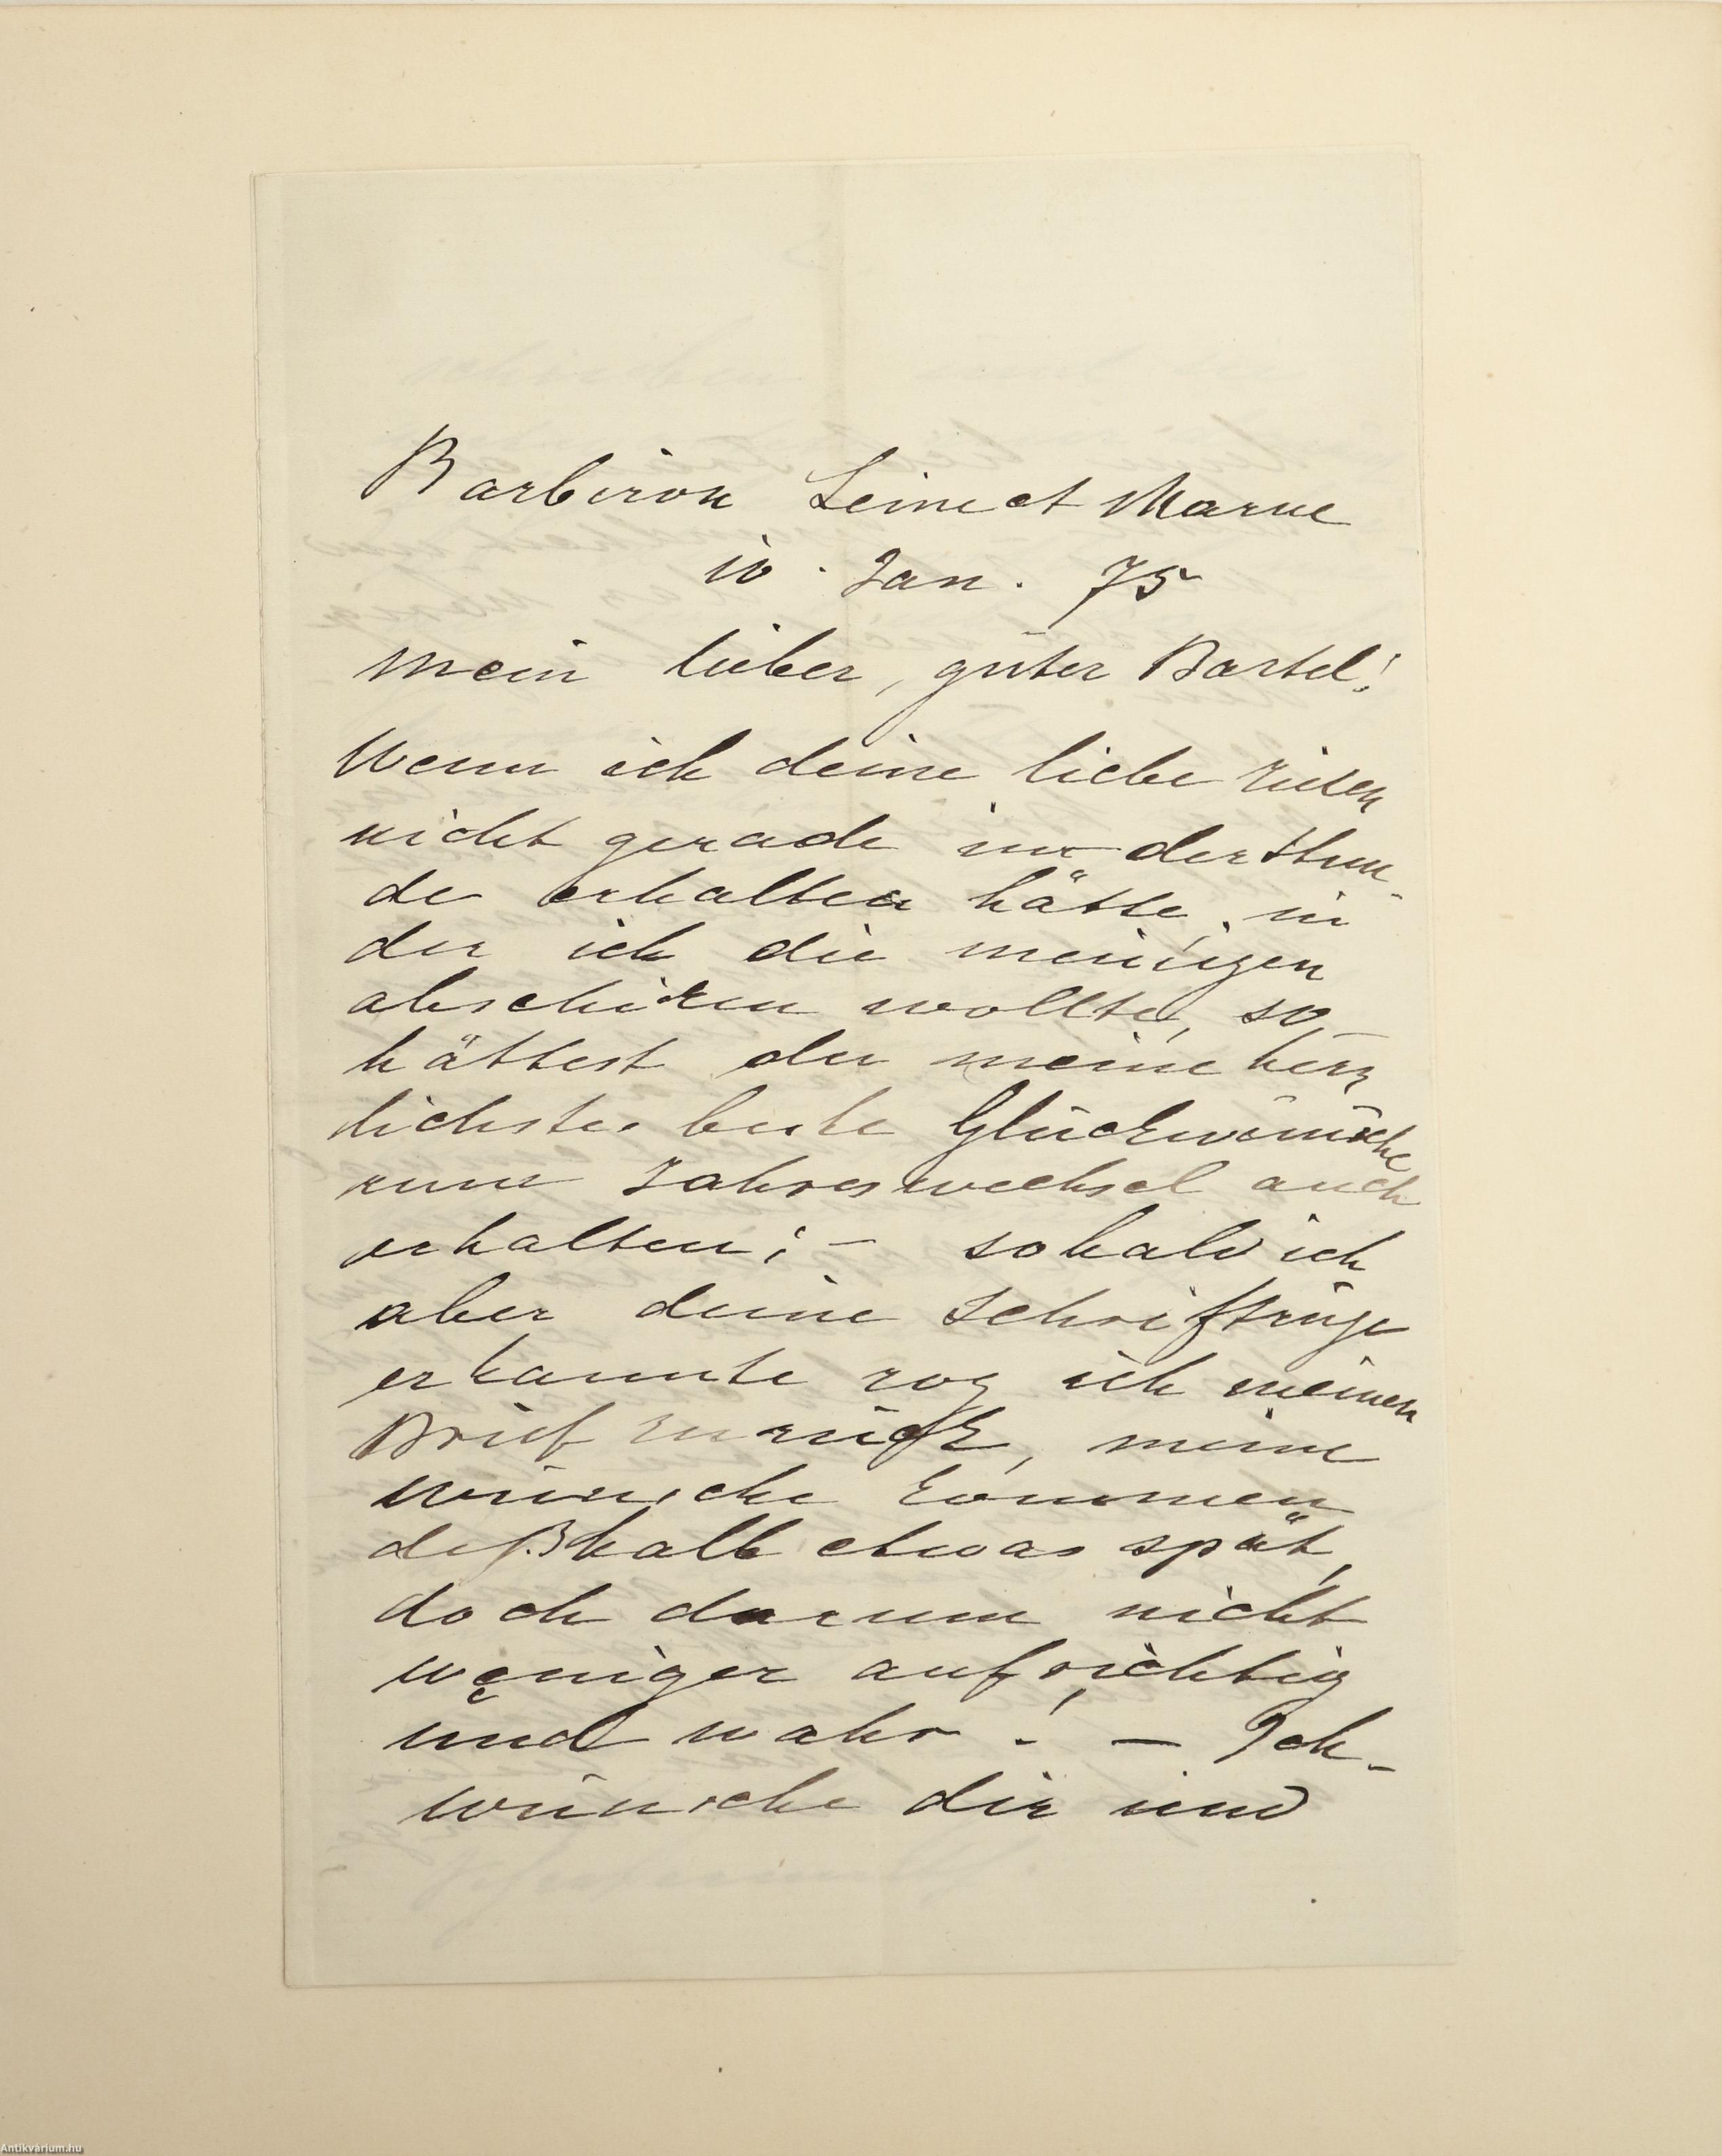 Barbizon Seine et Marne
10. Jan. 75
Mein lieber, guter Bartel!
Wenn ich deine liebe Zeilen
nicht gerade in der Stun-
de erhalten hätte, in
der ich die meinigen
abschiken wollte, so
hättest du meine herz
lichsten beste Glückwünsche
zum Jahreswechsel auch
erhalten; – sobald ich
aber deine Schriftzüge
erkannte zog ich meinen
Brief zurück, meine
wünsche kommen
deßhalb etwas spät,
doch darum nicht
weniger aufrichtig
und wahr! – Ich
wünsche dir und
Antikvárium.hu